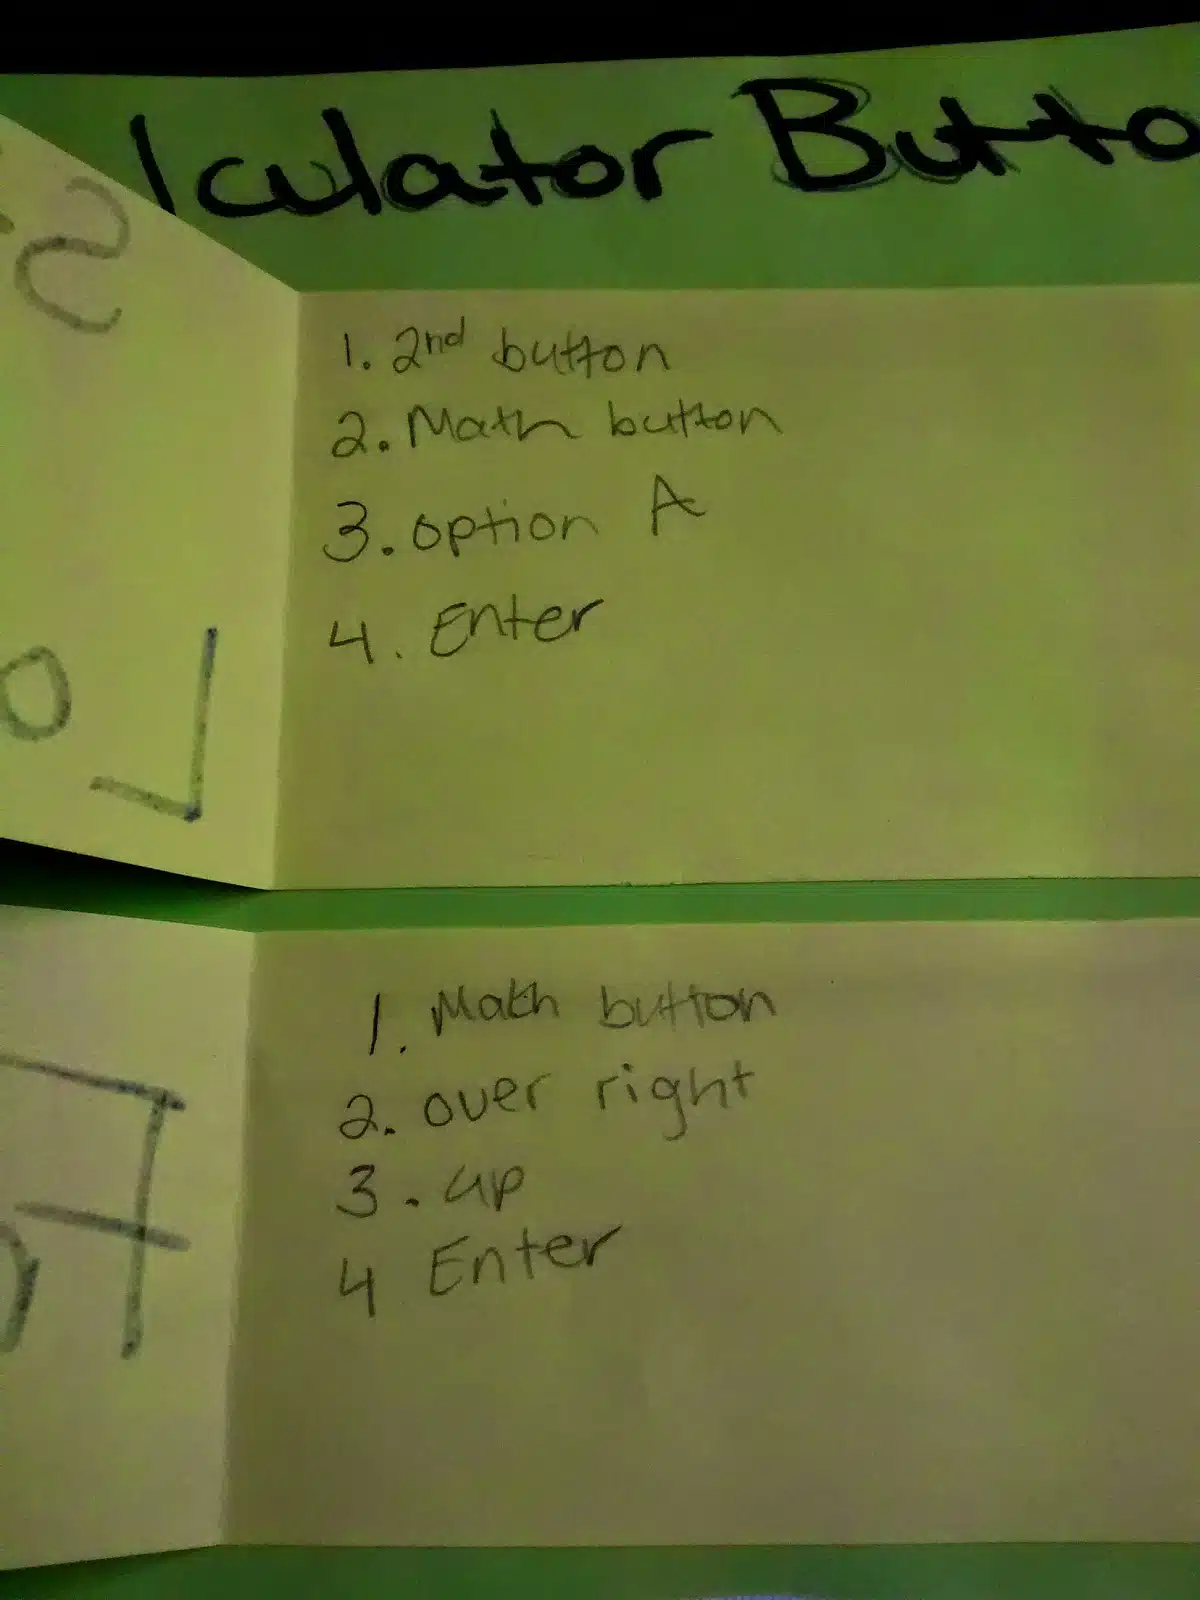 lculator Butto
1. 2nd button
2. Math button
3. option A
4. Enter
1. Math button
2. over right
3. up
4 Enter